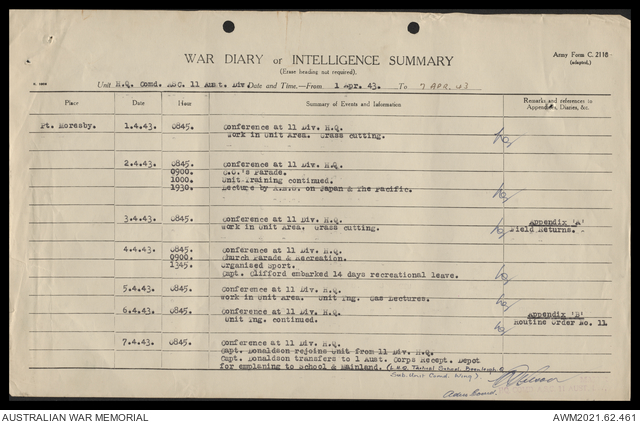 Army Form C. 2118
(adapted.)
WAR DIARY or INTELLIGENCE SUMMARY
(Erase heading not required).
Unit H.Q. Comd. ASC. 11 Aust. Div. Date and Time.—From 1 Apr. 43. To 7 APR. 43
Place Date Hour Summary of Events and Information Remarks and references to
Appendices, Diaries, &c.
Pt. Moresby. 1.4.43. 0845. Conference at 11 Div. H.Q.
Work in Unit Area. Grass cutting.
2.4.43. 0845. Conference at 11 Div. H.Q.
0900. C.O.'s Parade.
1000. Unit Training continued.
1930. Lecture by A.E.S. on Japan & The Pacific.
3.4.43. 0845. Conference at 11 Div. H.Q. Appendix 'A'
Work in Unit Area. Grass cutting. Field Returns.
4.4.43. 0845. Conference at 11 Div. H.Q.
0900. Church Parade & Recreation.
1345. Organised Sport.
Capt. Clifford embarked 14 days recreational leave.
5.4.43. 0845. Conference at 11 Div. H.Q.
Work in Unit Area. Unit Tng. Gas Lectures.
6.4.43. 0845. Conference at 11 Div. H.Q. Appendix 'B'
Unit Tng. continued. Routine Order No. 11
7.4.43. 0845. Conference at 11 Div. H.Q.
Capt. Donaldson rejoins Unit from 11 Div. H.Q.
Capt. Donaldson transfers to 1 Aust. Corps Recept. Depot
for emplaning to School & Mainland. (L.H.Q. Tactical School, Beenleigh, Q
Sub. Unit Comd. Wing)
AUSTRALIAN WAR MEMORIAL AWM2021.62.461